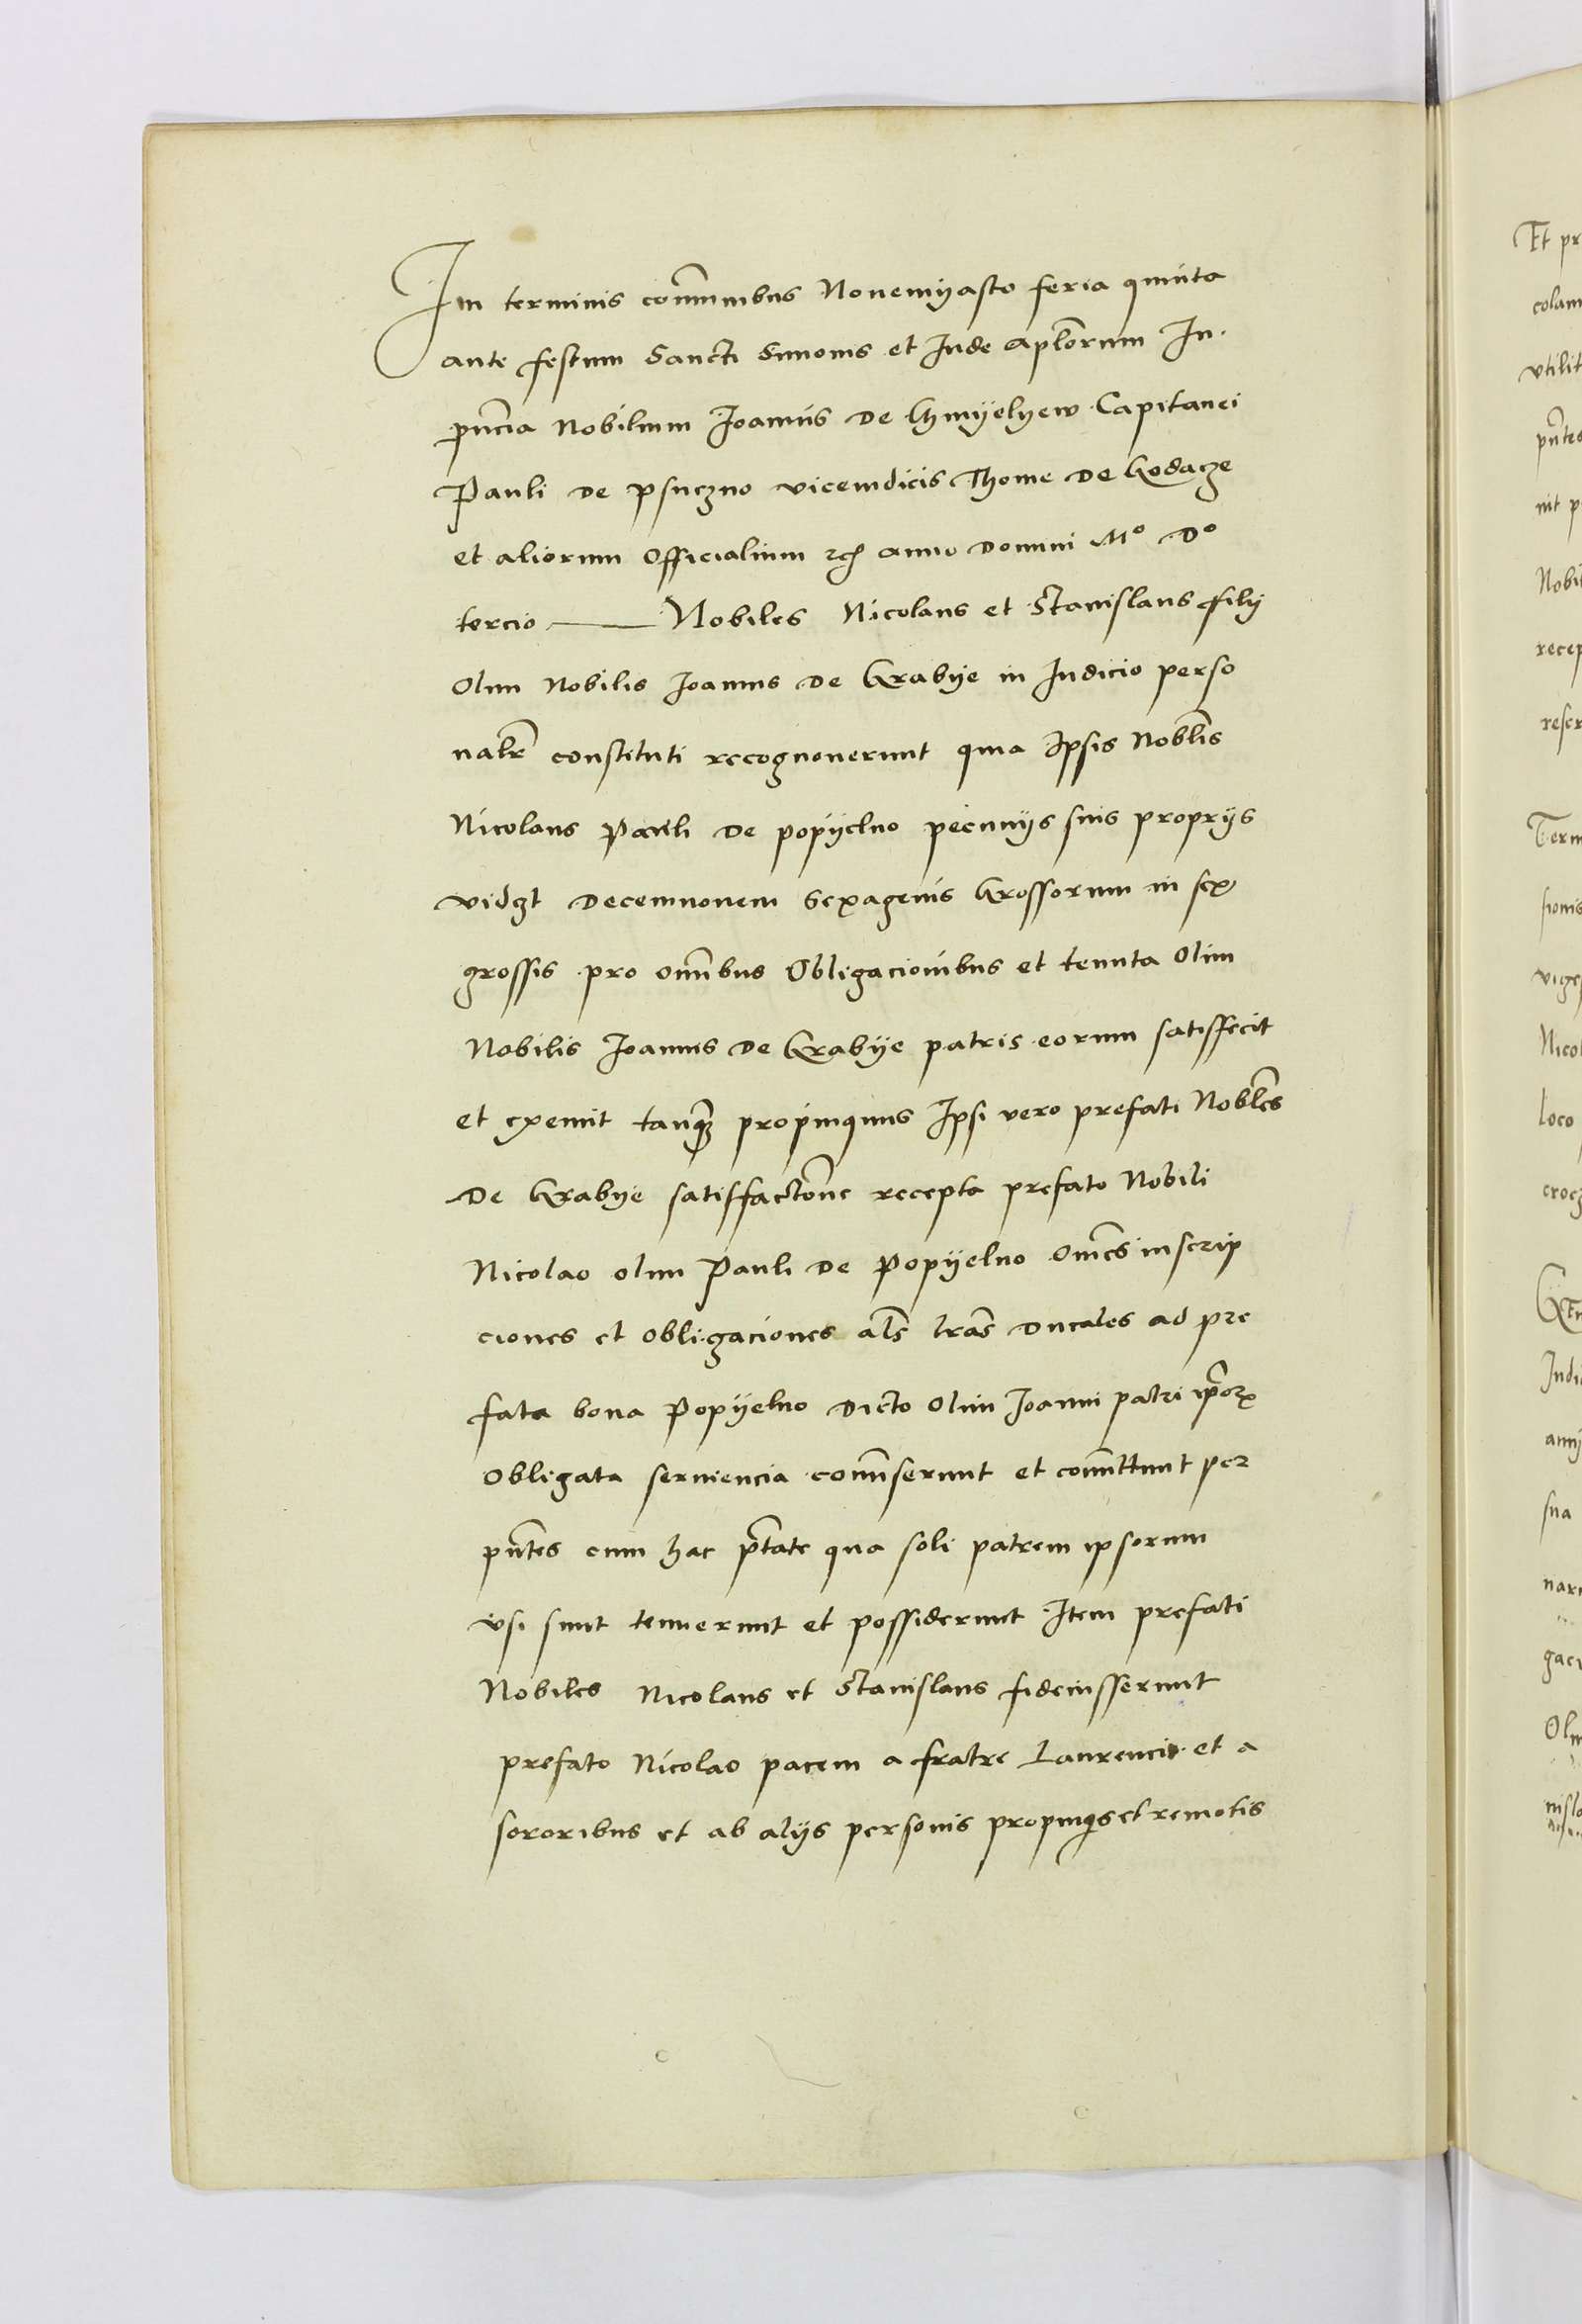 In terminis com̄unibus Novemyasto feria quinta
ante festum Sancti Simonis et Jude Apl̄orum In
pn̄cia Nobilium Joannis de Chmyelyew Capitanei
Pauli de psuczno viceiudicis Thome de Kodacze
et aliorum Officialium anno Domini Mº Dº
tercio Nobiles Nicolaus et Stanislaus filij
Olim Nobilis Joannis de Grabije in Judicio perso
nalr̄ constituti recognoverunt quia Ipsis Nobl̄is
Nicolaus Pauli de popijelno pecunijs suis proprijs
videzt Decemnovem Sexagenis Grossorum in sex
grossis pro om̄ibus Obligacionibus et tenuta Olim
Nobilis Joannis de Grabije patris eorum satisfecit
et exemit tanq̄ propinquus Ipsi vero prefati Nobl̄es
De Grabije satisfactōne recepta prefato Nobili
Nicolao olim Pauli de Popijelno Om̄es inscrip
ciones et obligaciones al̄s lr̄as Ducales ad pre
fata bona Popijelno Dicto Olim Joanni patri ip̄orꝝ
Obligata serviencia com̄iserunt et com̄ittunt per
pn̄tes cum hac pt̄ate qua soli patrem ipsorum
vsi sunt tenuerunt et possiderunt Item prefati
Nobiles Nicolaus et Stanislaus fideiusserunt
prefato Nicolao pacem a fratre Laurencio et a
sororibus et ab alijs personis propinq̄s et remotis
Et pr
colam
vtilit
pn̄tes
nit p
Nobil
recep
reser
Term
sionis
viges
Nicol
loco
crocz
Judi
sua
nare